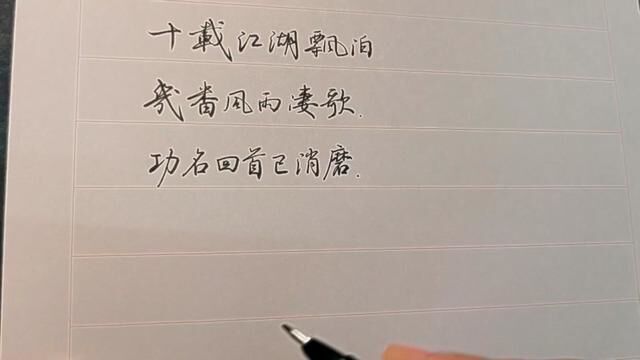 十載江湖飄泊
幾番风雨凄歌.
功名回首已消磨.